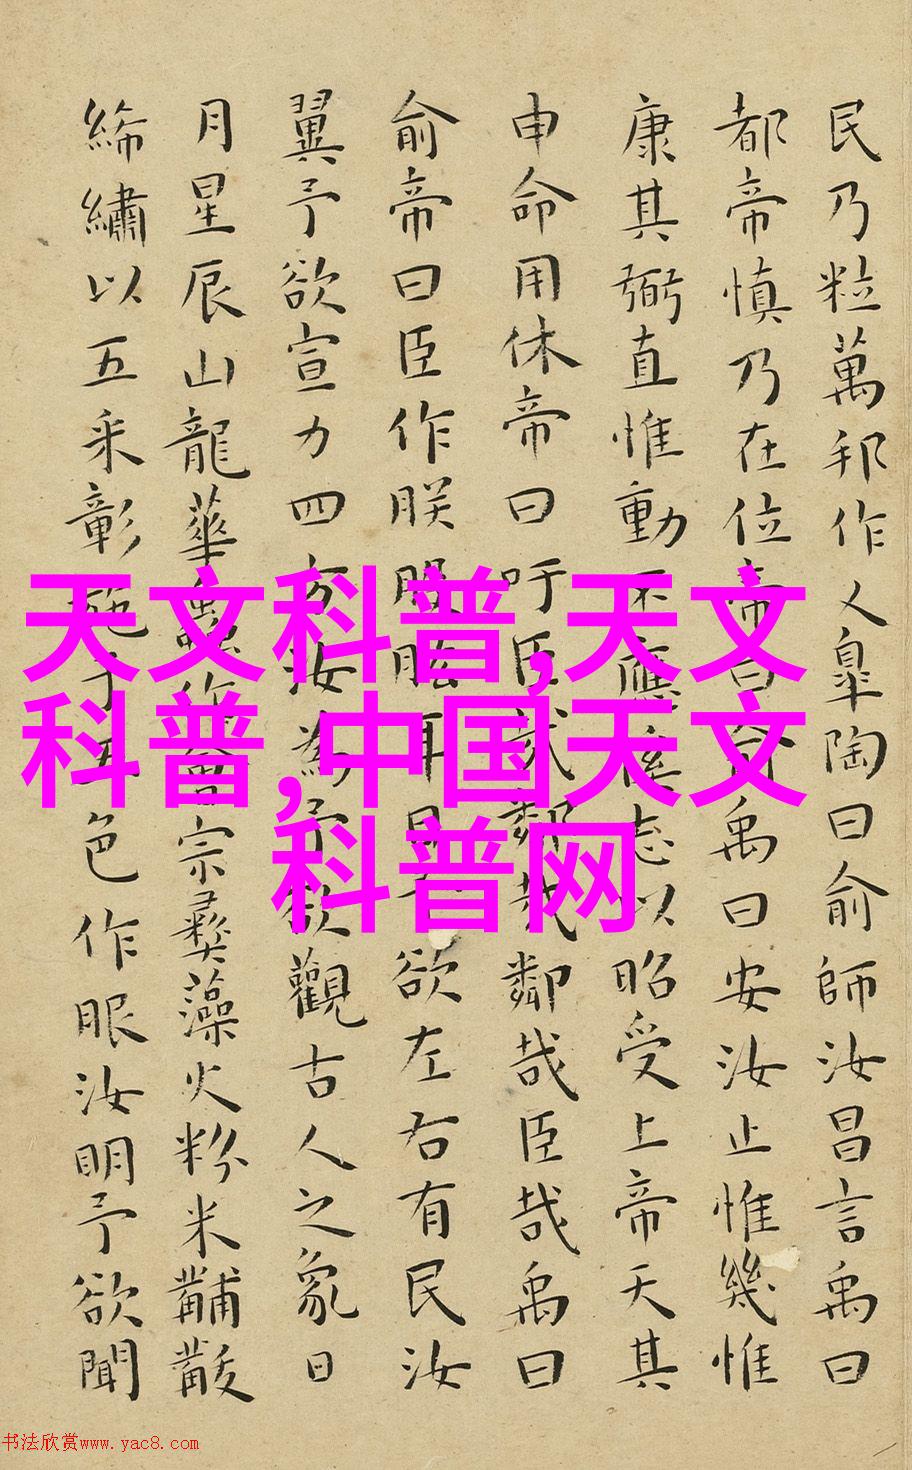 民乃粒萬邦作乂皐陶曰俞師汝昌言禹曰
都帝慎乃在位帝曰俞禹曰安汝止惟幾惟
康其弼直惟動丕應徯志以昭受上帝天其
申命用休帝曰吁臣哉鄰哉鄰哉臣哉禹曰
俞帝曰臣作朕股肱耳目予欲左右有民汝
翼予欲宣力四方汝為予欲觀古人之象日
月星辰山龍華蟲作會宗彝藻火粉米黼黻
絺繡以五采彰施于五色作服汝明予欲聞
天文科普,天文
科普,中国天文
科普网
书法欣赏www.yac8.com